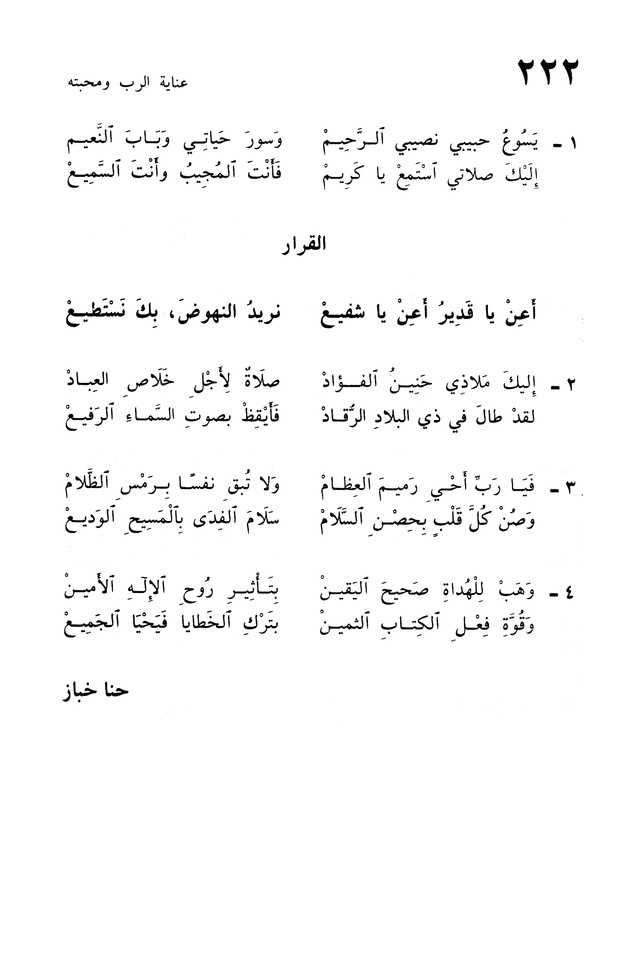 ٢٢٢
عناية الرب ومحبته
١ ـ يَسُوعُ حبيبي نصيبي ٱلـرَّحِيـمْ وَسورَ حَياتِـي وَبَـابَ ٱلنَّعيـم
إِلَيْكَ صلاتي ٱسْتَمِعْ يا كَرِيـمْ فَأَنْتَ ٱلمُجيبُ وأَنْتَ ٱلسَّمِيعْ
القرار
أَعِنْ يا قَدِيرُ أَعِنْ يا شفيعْ نريدُ النهوضَ، بِكَ نَسْتَطيـعْ
٢ ـ إِليكَ مَلاذِي حَنِينُ ٱلفـؤادْ صلاةٌ لِأَجْلِ خَلَاصِ ٱلعِبـادْ
لقدْ طالَ في ذي البلادِ ٱلرُّقـادْ فَأَيْقِظْ بصوتِ ٱلسَّماءِ ٱلرَفيـعْ
٣ ـ فَيَـا رَبِّ أَحْيِ رَميـمَ ٱلعِظـامْ وَلا تُبقِ نفسًـا بِـرَمْسِ ٱلظَّلامْ
وَصُنْ كُلَّ قَلْبٍ بِحِصْنِ ٱلسَّلامْ سَلَامَ ٱلفِدَى بِٱلْمَسيحِ ٱلوَديـعْ
٤ ـ وَهَبْ لِلْهُداةِ صَحيحَ ٱليَقينْ بِتَـأْثِيـرِ رُوحِ ٱلإِلـهِ ٱلأَميـنْ
وَقُوَّةِ فِعْلِ ٱلكِتـابِ ٱلثميـنْ بتَرْكِ ٱلخَطايا فَيَحْيَا ٱلجَمِيعْ
حنا خباز